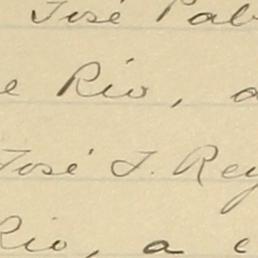 José Pab
e Río, a
José T. Rey
Rio, a c